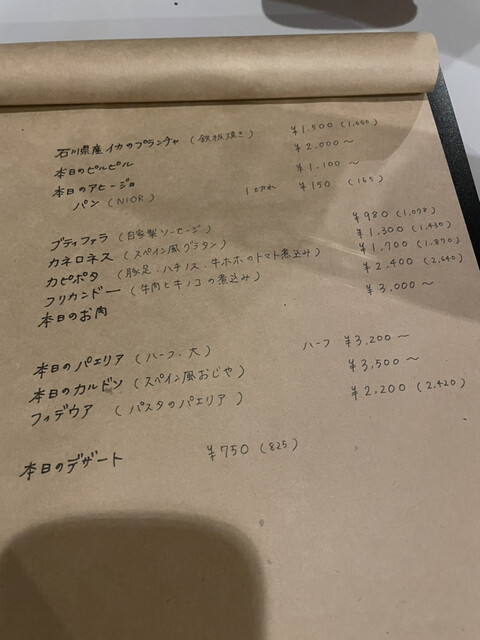 石川県産イカのプランチャ (鉄板焼き) ¥1,500 (1,650)
本日のピルピル ¥2,000〜
本日のアヒージョ ¥1,100〜
パン (NIOR) 1切れ ¥150 (165)
ブティファラ (自家製ソーセージ) ¥980 (1,078)
カネロネス (スペイン風グラタン) ¥1,300 (1,430)
カピポタ (豚足・ハチノス・牛ホホのトマト煮込み) ¥1,700 (1,870)
フリカンドー (牛肉とキノコの煮込み) ¥2,400 (2,640)
本日のお肉 ¥3,000〜
本日のパエリア (ハーフ・大) ハーフ ¥3,200〜
本日のカルドソ (スペイン風おじや) ¥3,500〜
フィデウア (パスタのパエリア) ¥2,200 (2,420)
本日のデザート ¥750 (825)